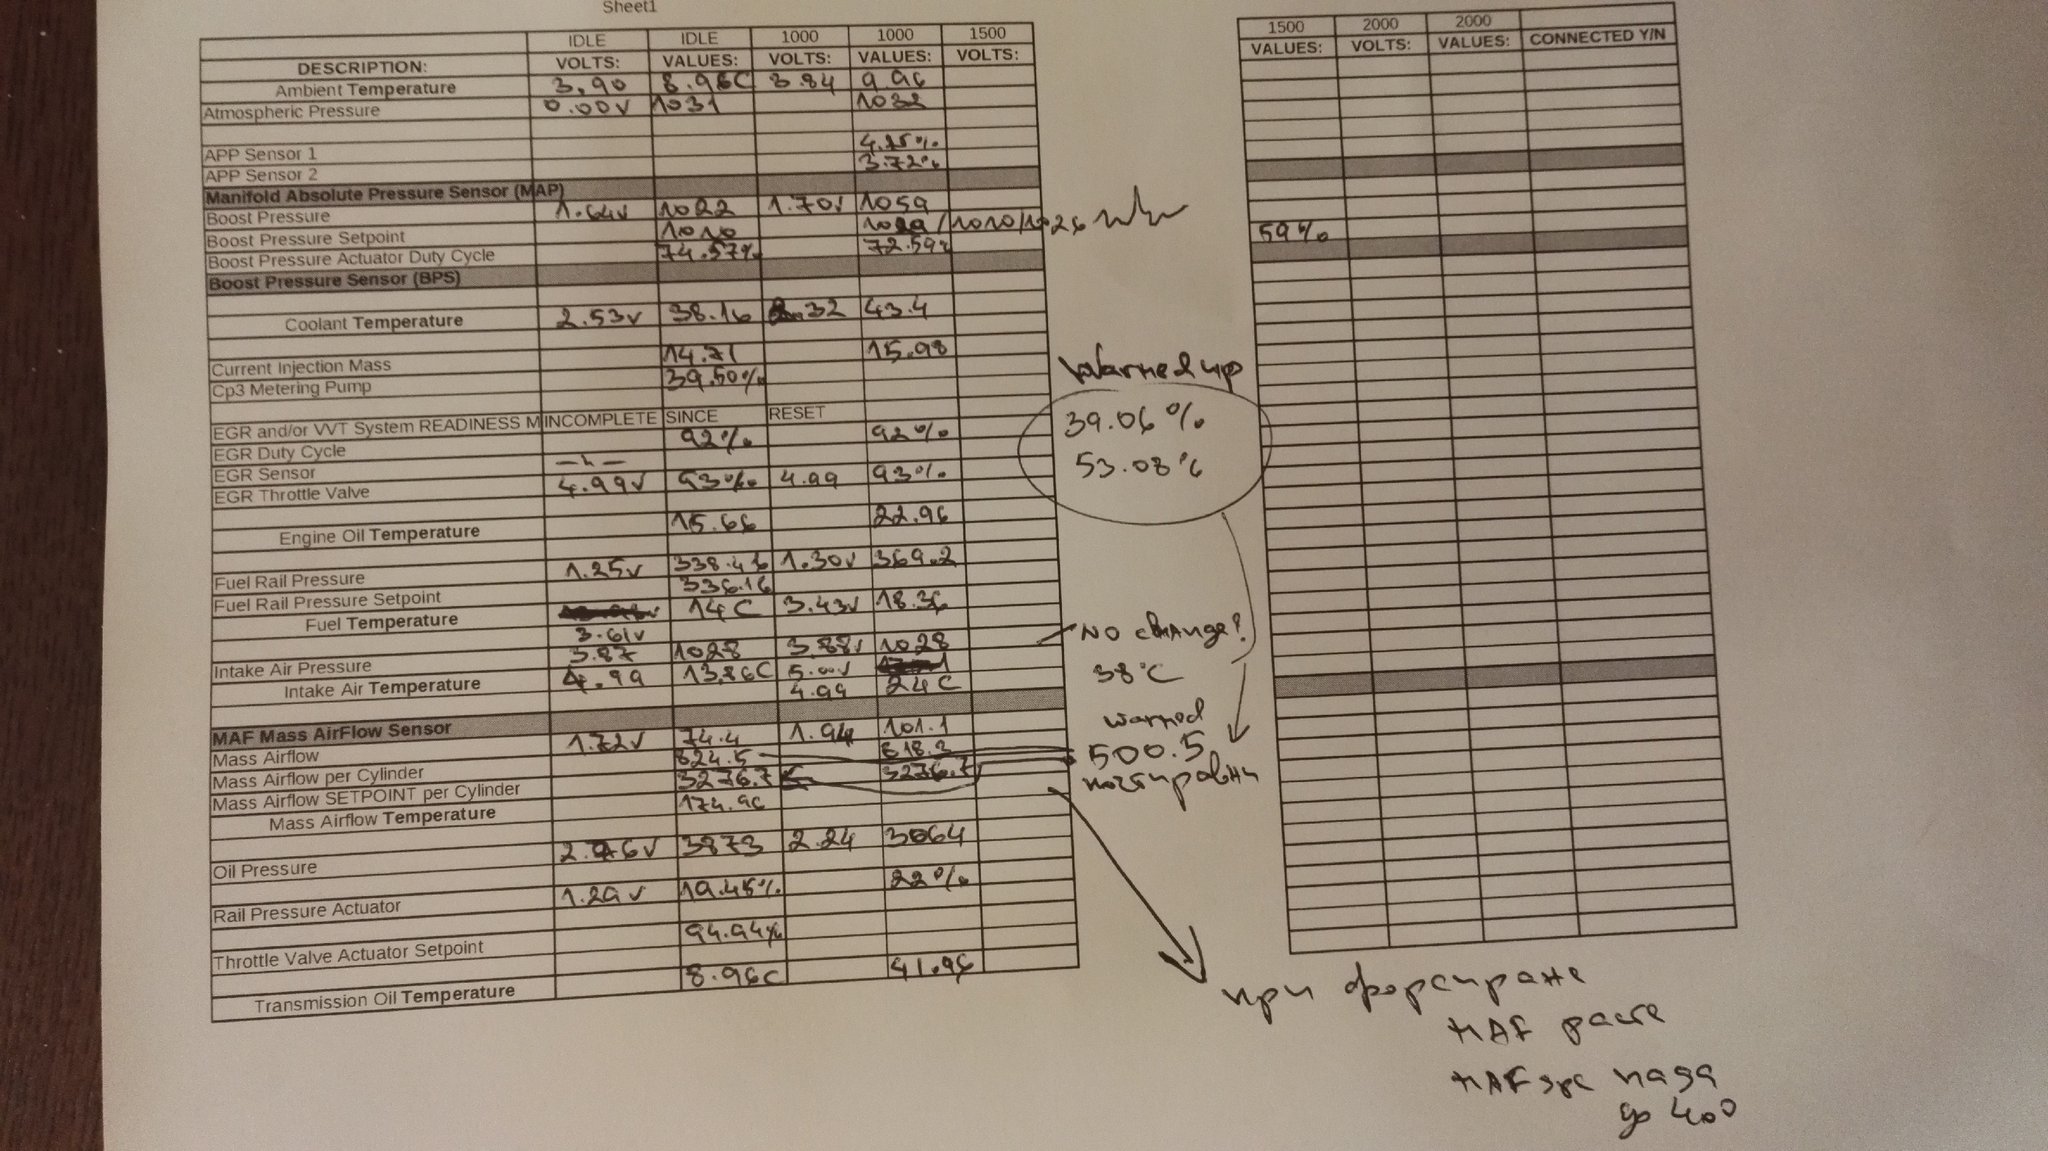 Sheet1
IDLE IDLE 1000 1000 1500 1500 2000 2000
DESCRIPTION: VOLTS: VALUES: VOLTS: VALUES: VOLTS: VALUES: VOLTS: VALUES: CONNECTED Y/N
Ambient Temperature 3.90 8.96C 3.84 9.96
Atmospheric Pressure 0.00V 1031 1032
APP Sensor 1 4.25%
APP Sensor 2 3.72%
Manifold Absolute Pressure Sensor (MAP)
Boost Pressure 1.64V 1022 1.70V 1059
Boost Pressure Setpoint 1010 /1010/1026
Boost Pressure Actuator Duty Cycle 74.57% 72.59% 59%
Boost Pressure Sensor (BPS)
Coolant Temperature 2.53V 38.16 2.32 43.4
Current Injection Mass 14.71 15.98
Cp3 Metering Pump 39.50%
Warmed up
39.06%
53.08%
EGR and/or VVT System READINESS M INCOMPLETE SINCE RESET
EGR Duty Cycle 92% 92%
EGR Sensor
EGR Throttle Valve 4.99V 93% 4.99 93%
Engine Oil Temperature 15.66 22.96
Fuel Rail Pressure 1.25V 338.46 1.30V 369.2
Fuel Rail Pressure Setpoint 336.16
Fuel Temperature 3.61V 14C 3.43V 18.36
Intake Air Pressure 3.87 1028 3.88V 1028
NO change?
Intake Air Temperature 4.99 13.86C 5.00V
4.99 24C
38°C
MAF Mass AirFlow Sensor
Mass Airflow 1.72V 74.4 1.94 101.1
Mass Airflow per Cylinder 824.5 818.3
Mass Airflow SETPOINT per Cylinder 3276.7 3276.7
Mass Airflow Temperature 174.96
warmed
500.5
почти равни
Oil Pressure 2.96V 3873 2.24 3064
Rail Pressure Actuator 1.29V 19.45% 22%
Throttle Valve Actuator Setpoint 94.94%
Transmission Oil Temperature 8.96C 41.96
при форсиране
MAF расте
MAF spc пада
до 400